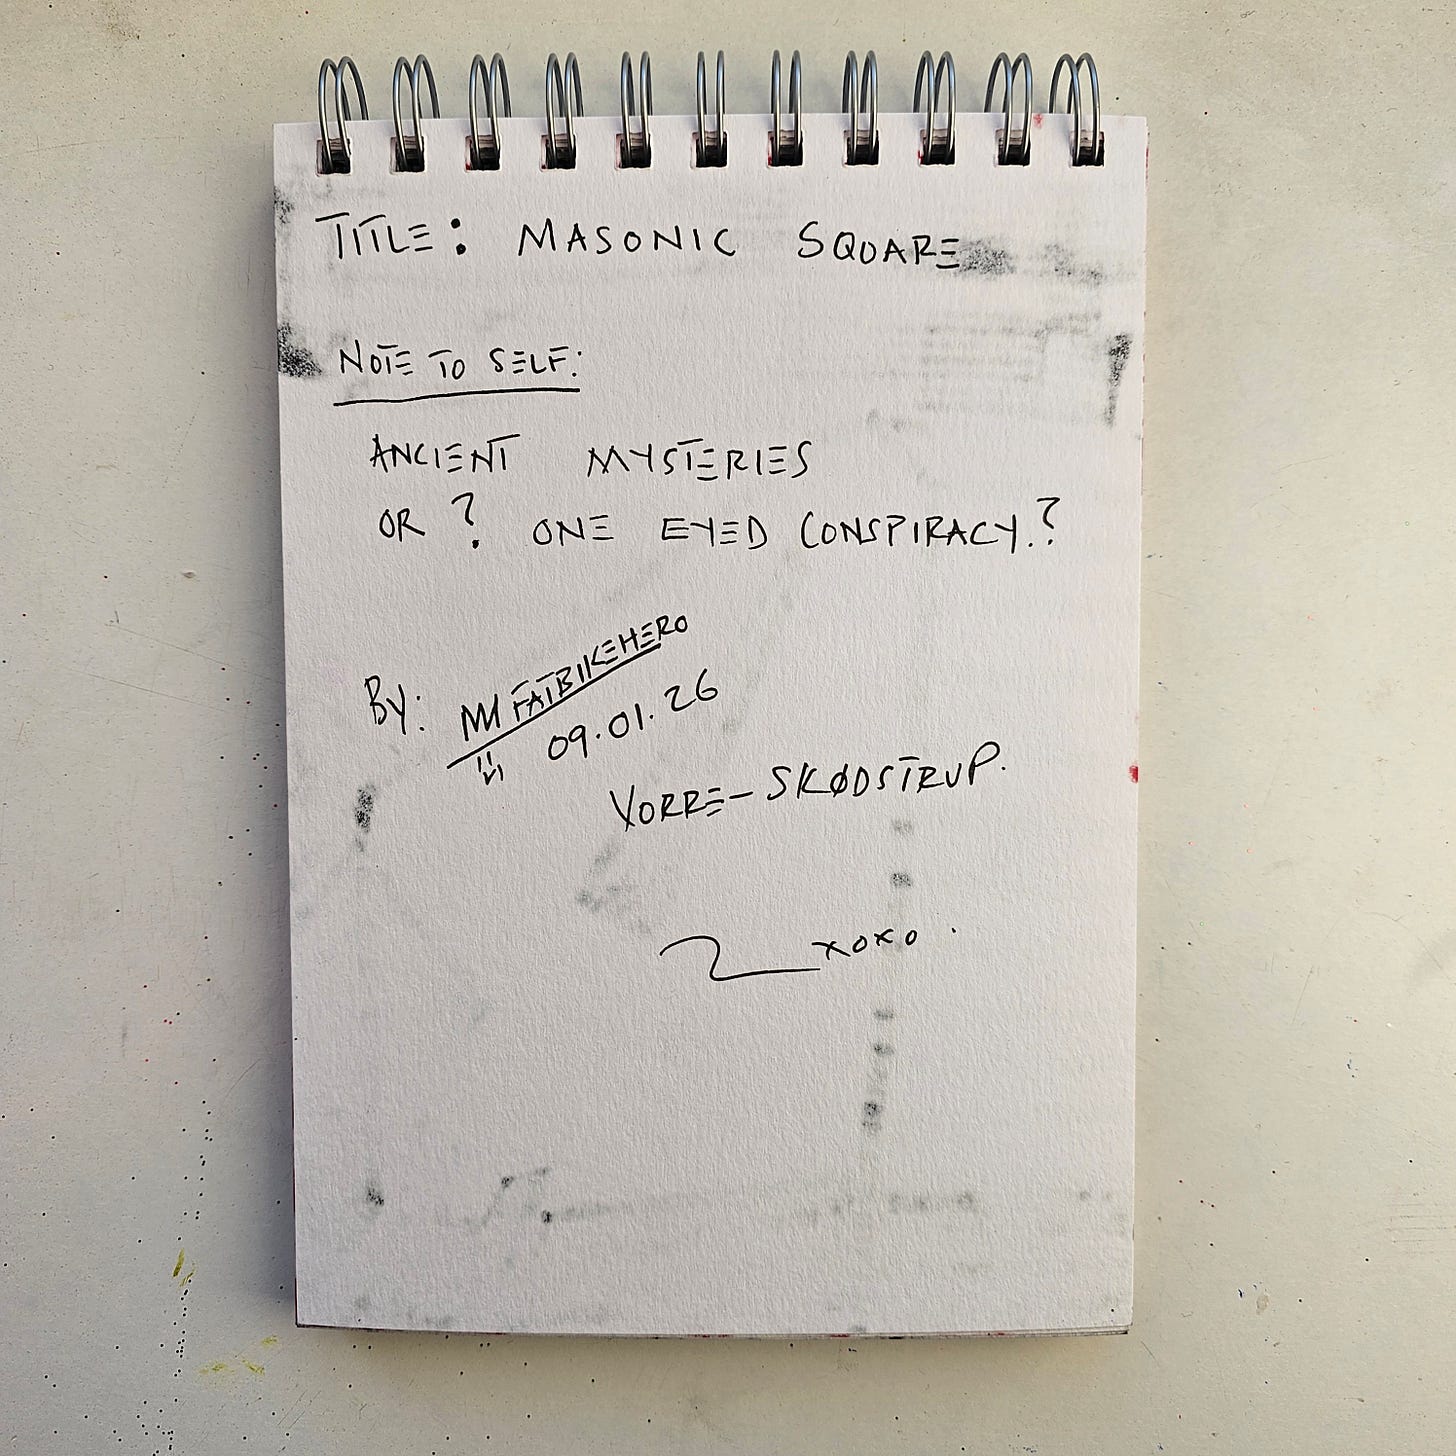 TITLE: MASONIC SQUARE
NOTE TO SELF:
ANCIENT MYSTERIES
OR ? ONE EYED CONSPIRACY.?
By: FATBIKEHERO
09.01.26
VORRE-SKØDSTRUP.
xoxo.